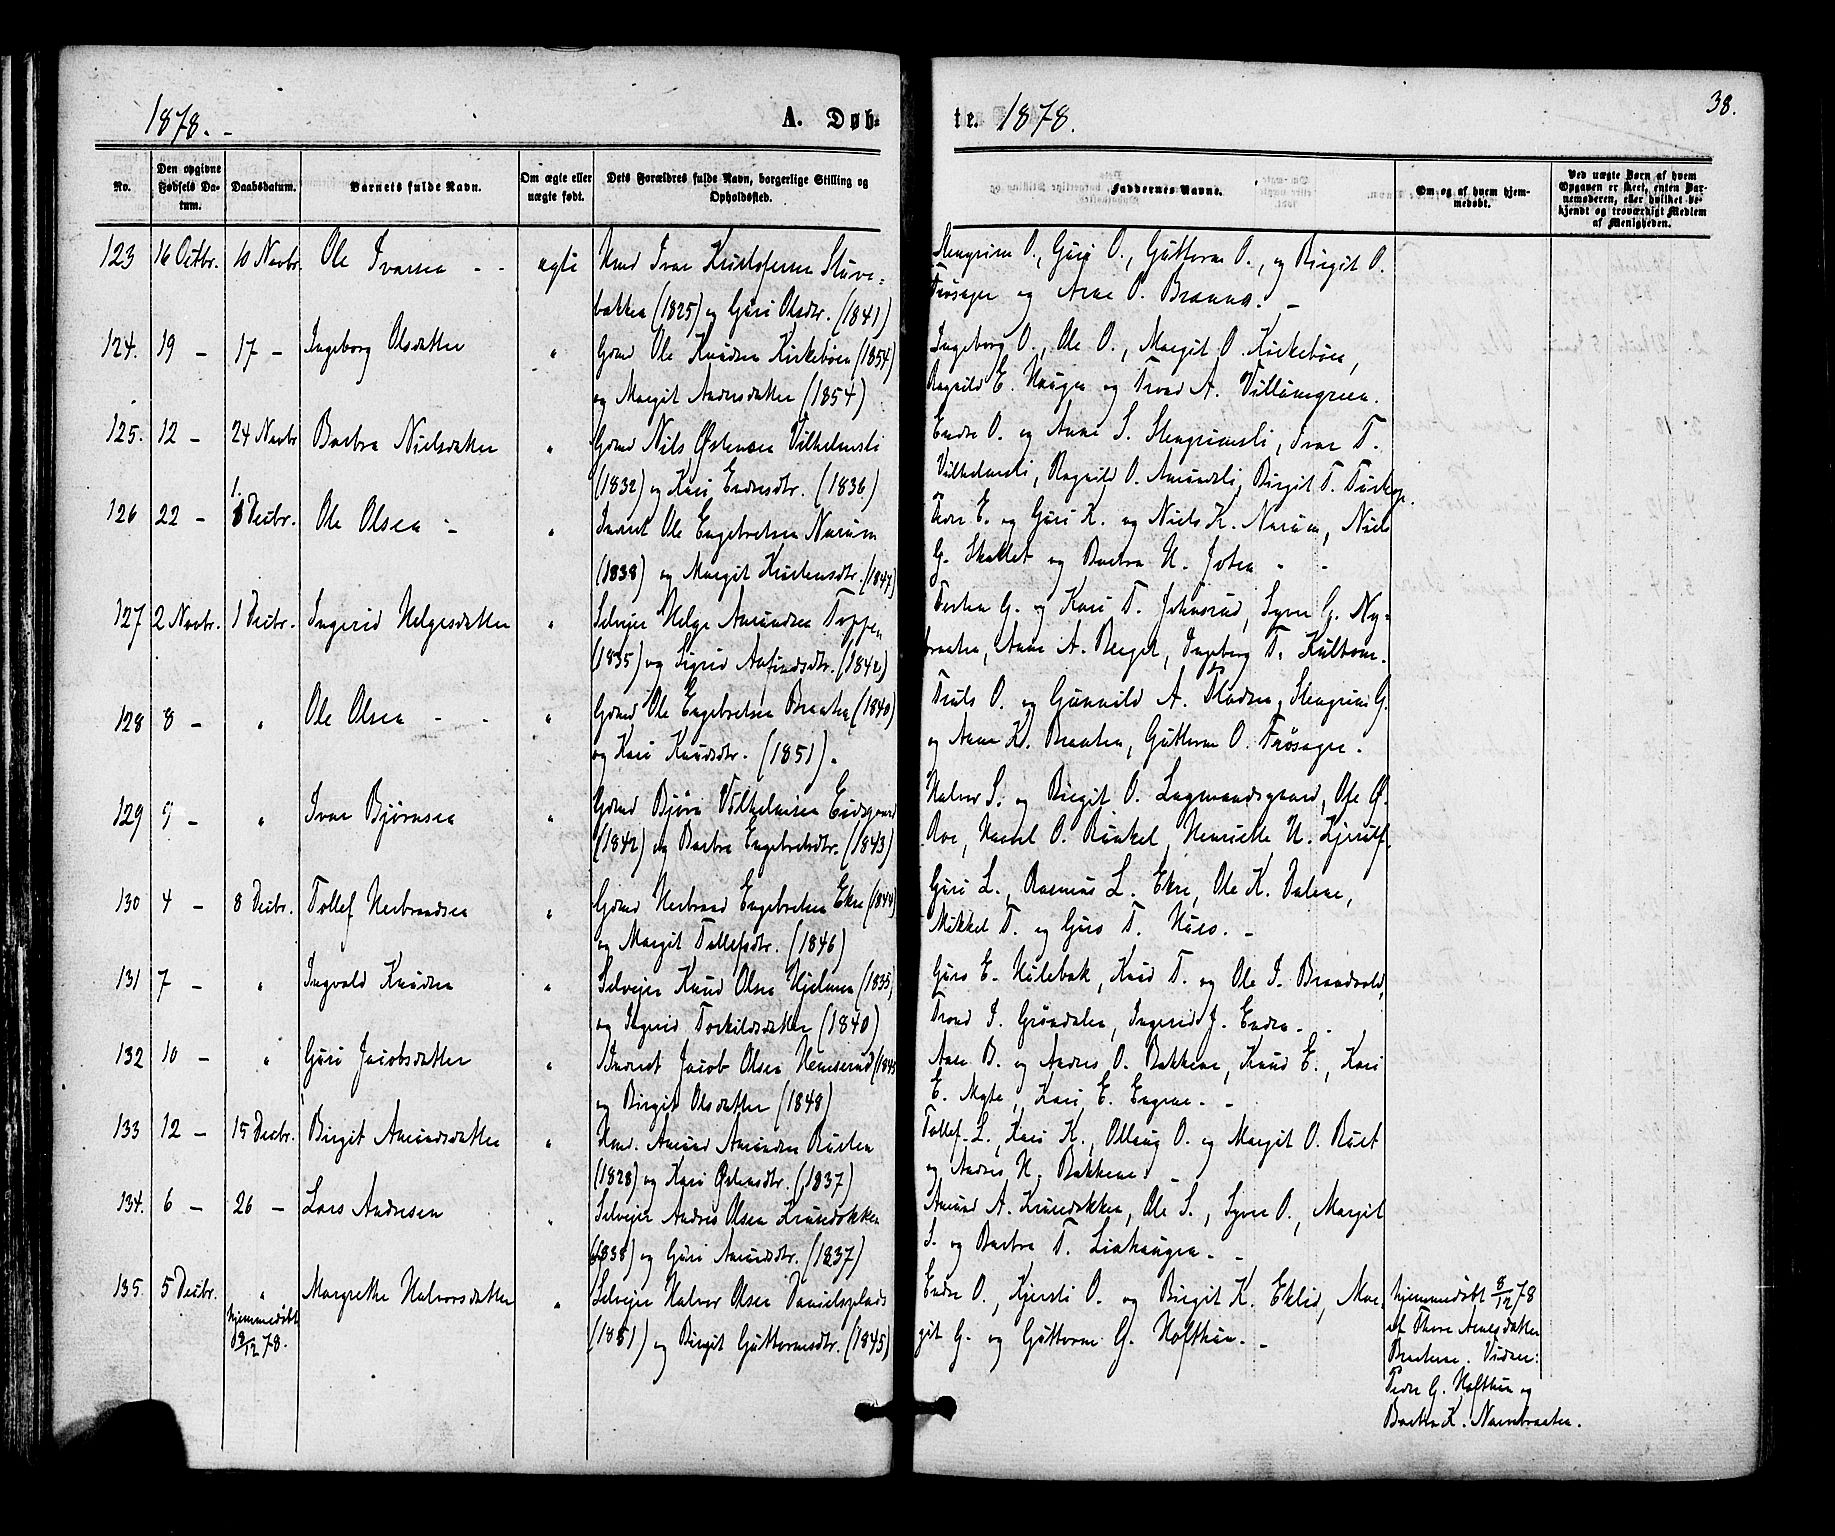 1878. -
A. Døb-
te. 1878.
38.
No.
Den opgivne Fødsels Datum.
Daabsdatum.
Barnets fulde Navn.
Om ægte eller uægte født.
Dets Forældres fulde Navn, borgerlige Stilling og Opholdssted.
Faddernes Navne.
Om og af hvem hjemmedøbt.
Ved uægte Børn af hvem Opgaven er skeet, enten Barnemoderen, eller hvilket bekjendt og troværdigt Medlem af Menigheden.
123 16 Octbr. 10 Novbr. Ole Ivarsen - - ægte Kmd Ivar Kristofersen Sluve-
bakken (1825) og Guri Olsdtr. (1841)
Stengrim O., Guri O., Guttorm O., og Birgit O.
Frøsager og Arne O. Brænna. -
124. 19 - 17 - Ingeborg Olsdatter " Gdmd Ole Knudsen Kirkebøen (1854)
og Margit Andersdatter (1854)
Ingeborg O., Ole O., Margit O. Kirkebøen,
Ragnild E. Haugen og Trond A. Villumgreen.
125. 12 - 24 Novbr Barbra Nielsdatter " Gdmd Nils Østensen Vilhelmsli
(1832) og Kari Endresdtr. (1836)
Endre O. og Anne S. Stengrimsli, Ivar T.
Vilhelmsli, Ragnild O. Amundsli, Birgit T. Turkop.
126 22 - 1 Decbr. Ole Olsen - " Inderst Ole Engebretsen Narum
(1838) og Margit Kristensdtr. (1847)
Tedre E. og Guri K. og Niels K. Narum, Niels
G. Skallet og Barbra N. Joten - -
127 2 Novbr. 1 Decbr. Ingerid Helgesdatter " Selvejer Helge Amundsen Toppen
(1835) og Sigrid Anfindsdtr. (1842)
Torsten G. og Kari T. Johnsrud, Syver G. Ny-
braaten, Anne A. Berget, Ingeborg T. Kultom.
128 8 - " Ole Olsen - - " Gdmd Ole Engebretsen Braaten (1840)
og Kari Knudsdtr. (1851).
Truls O. og Gunnild A. Fladsen, Stengrim G.
og Anne K. Braaten, Guttorm O. Frøsager.
129 9 - " Ivar Bjørnsen " Gdmd Bjørn Vilhelmsen Eidsgaard
(1842) og Barbra Engebretsdtr. (1843)
Halvor S. og Birgit O. Lagmandsgaard, Ole Ø.
Roe, Haavel O. Runkel, Henriette H. Kjerulf.
130 4 - 8 Decbr. Tollef Herbrandsen " Gdmd Herbrand Engebretsen Ekre (1844)
og Margit Tollefsdtr. (1846)
Guri L., Rasmus L. Ekre, Ole K. Dalene,
Mikkel T. og Guro T. Huso. -
131 7 - " Ingvald Knudsen " Selvejer Knud Olsen Hjelmen (1835)
og Ingerid Torkildsdatter (1840)
Guro E. Hulebak, Knud T. og Ole I. Brandvold,
Trond I. Grøndalen, Ingerid J. Endra. -
132 10 - " Guri Jacobsdatter " Inderst Jacob Olsen Hemserud (1845
og Birgit Olsdatter (1848)
Aase B. og Andres O. Bakkene, Knud E., Kari
E. Mythe, Kari E. Engene. -
133 12 - 15 Decbr. Birgit Amundsdatter " Kmd. Amund Amundsen Rusten
(1828) og Kari Østensdtr. (1837)
Tollef L., Kari K., Ollaug O. og Margit O. Rust
og Andres H. Bakkene. -
134. 6 - 26 - Lars Andresen " Selvejer Andres Olsen Krunsokken
(1838) og Guri Amundsdtr. (1837)
Amund A. Krunsokken, Ole S., Syver O., Margit
S. og Barbra T. Liahaugen. -
135. 5 Decbr. " Margrethe Halvorsdatter " Selvejer Halvor Olsen Danielsplads
hjemmedøbt
8/12 78.
(1851) og Birgit Guttormsdtr. (1845)
Endre O., Kjersti O. og Birgit K. Eklid, Mar-
git G. og Guttorm G. Hofthun. -
Hjemmedøbt 8/12 78
af Thore Arnesdatter
Braatene. Vidner:
Tedre G. Hofthun og
Barbra K. Narumbraaten.